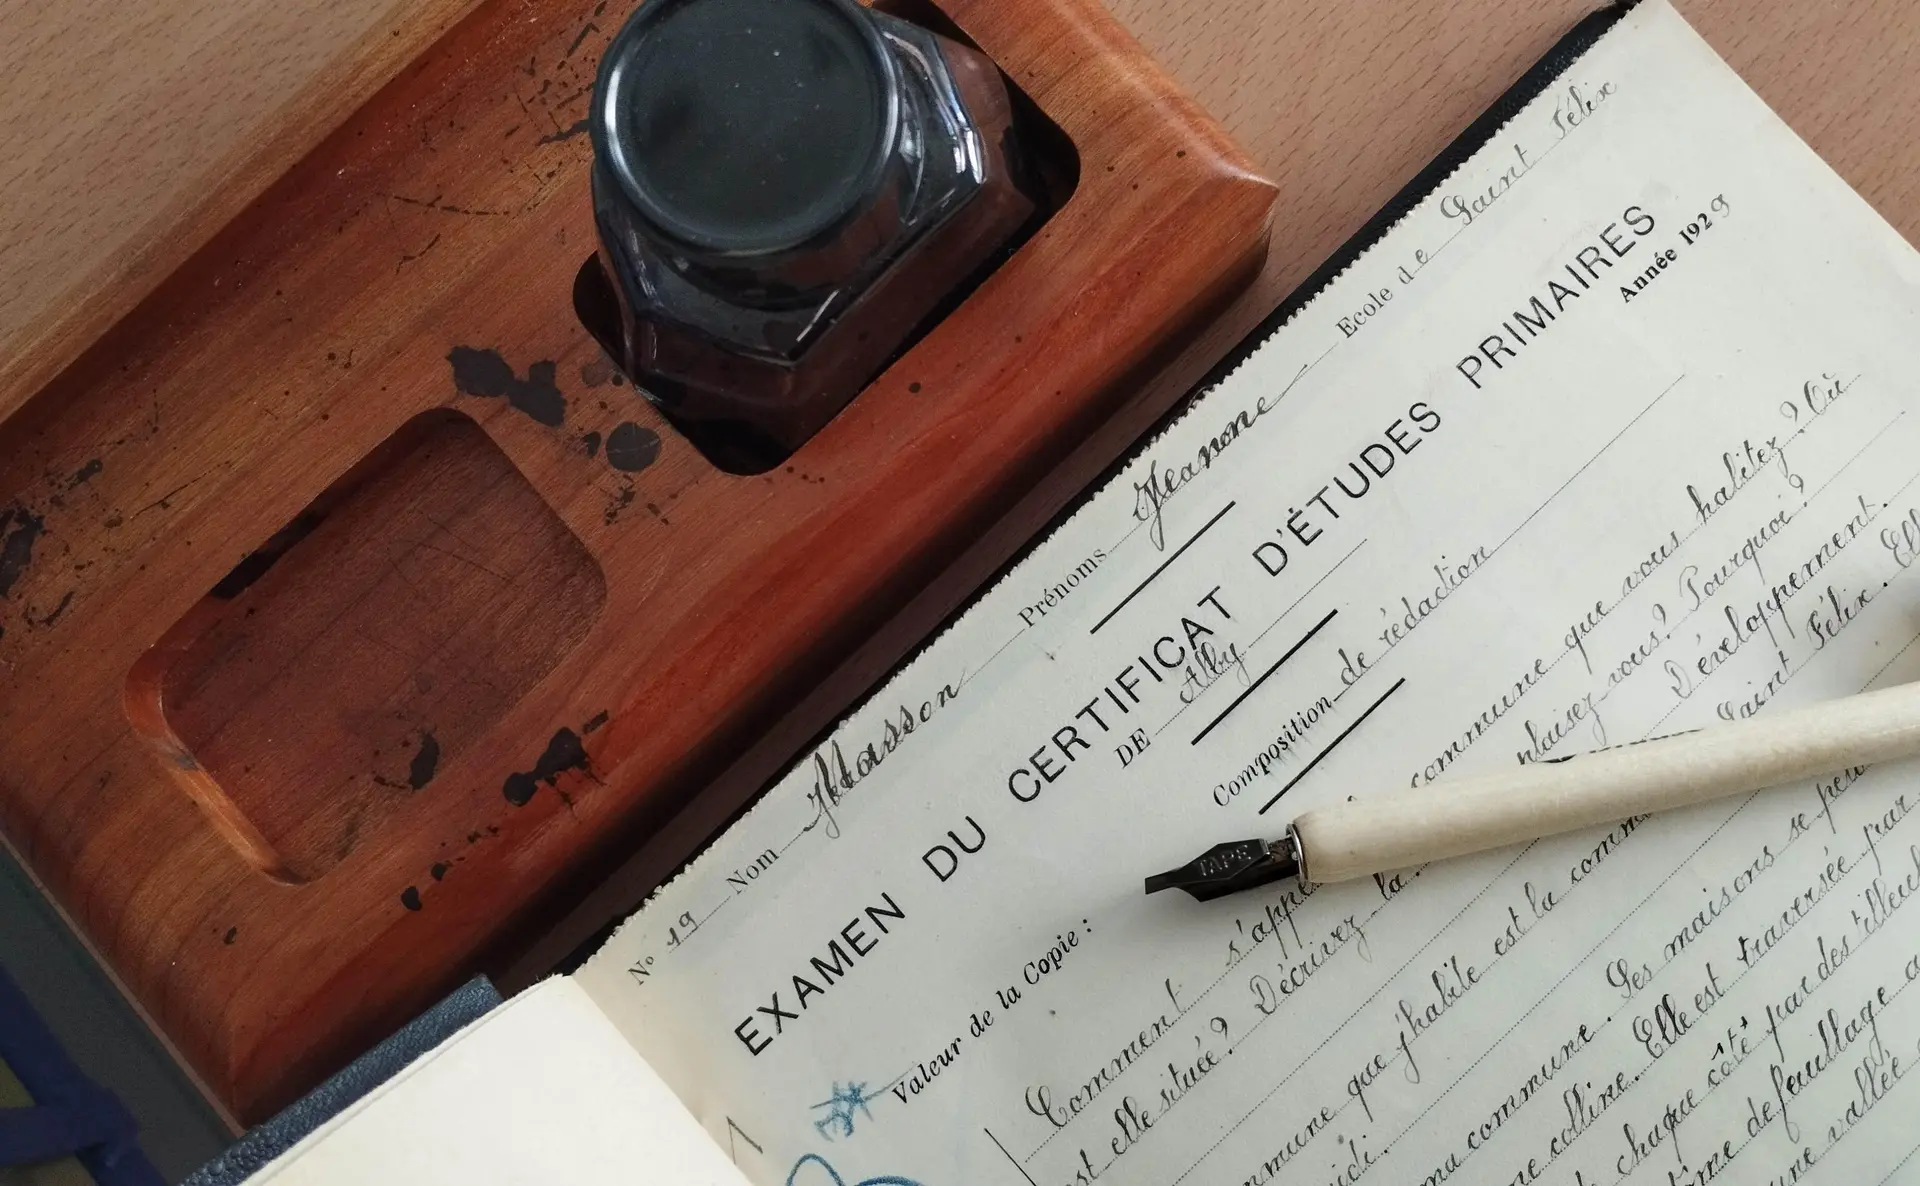 N° 19 Nom Masson Prénoms Jeanne Ecole de Saint Félix
EXAMEN DU CERTIFICAT D'ÉTUDES PRIMAIRES
Année 1929
DE Alby
Composition de rédaction
Valeur de la Copie :
Comment s'appe commune que vous habitez ? Où
est elle située? Décrivez la plaisez-vous? Pourquoi?
Développement.
mmune que j'habite est la comm Saint Félix. Ell
idi.
ma commune. Ses maisons se peu
ne colline. Elle est traversée par
chaque côté par des tilleul
de feuillage a
une vallée
TAPE